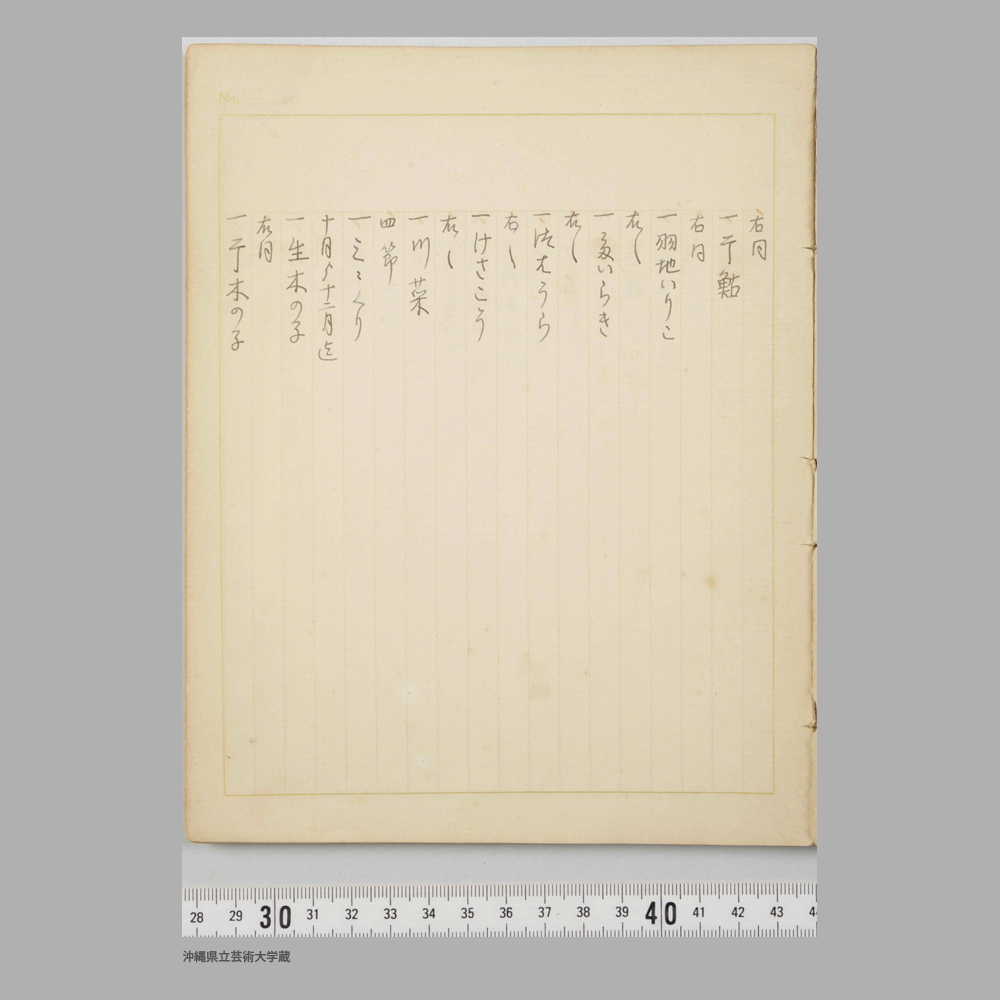 No.
右同
一 干鮎
右同
一 羽地いりこ
右〳〵
一 ゑいらき
右〳〵
一 はうら
右〳〵
一 けさこう
右〳〵
一 川菜
四節
一 ミミくり
十月ゟ十二月迄
一 生木の子
右同
一 干木の子
28 29 30 31 32 33 34 35 36 37 38 39 40 41 42 43
沖縄県立芸術大学蔵